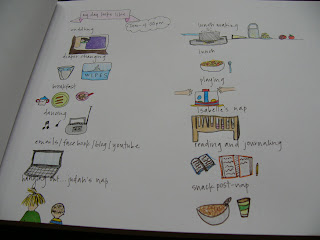 my day looks like
cuddling
diaper changing
WIPES
breakfast
dancing
emails/facebook/blog/youtube
hanging out... judah's nap
lunch making
lunch
playing
Isabelle's nap
reading and journaling
snack post-nap